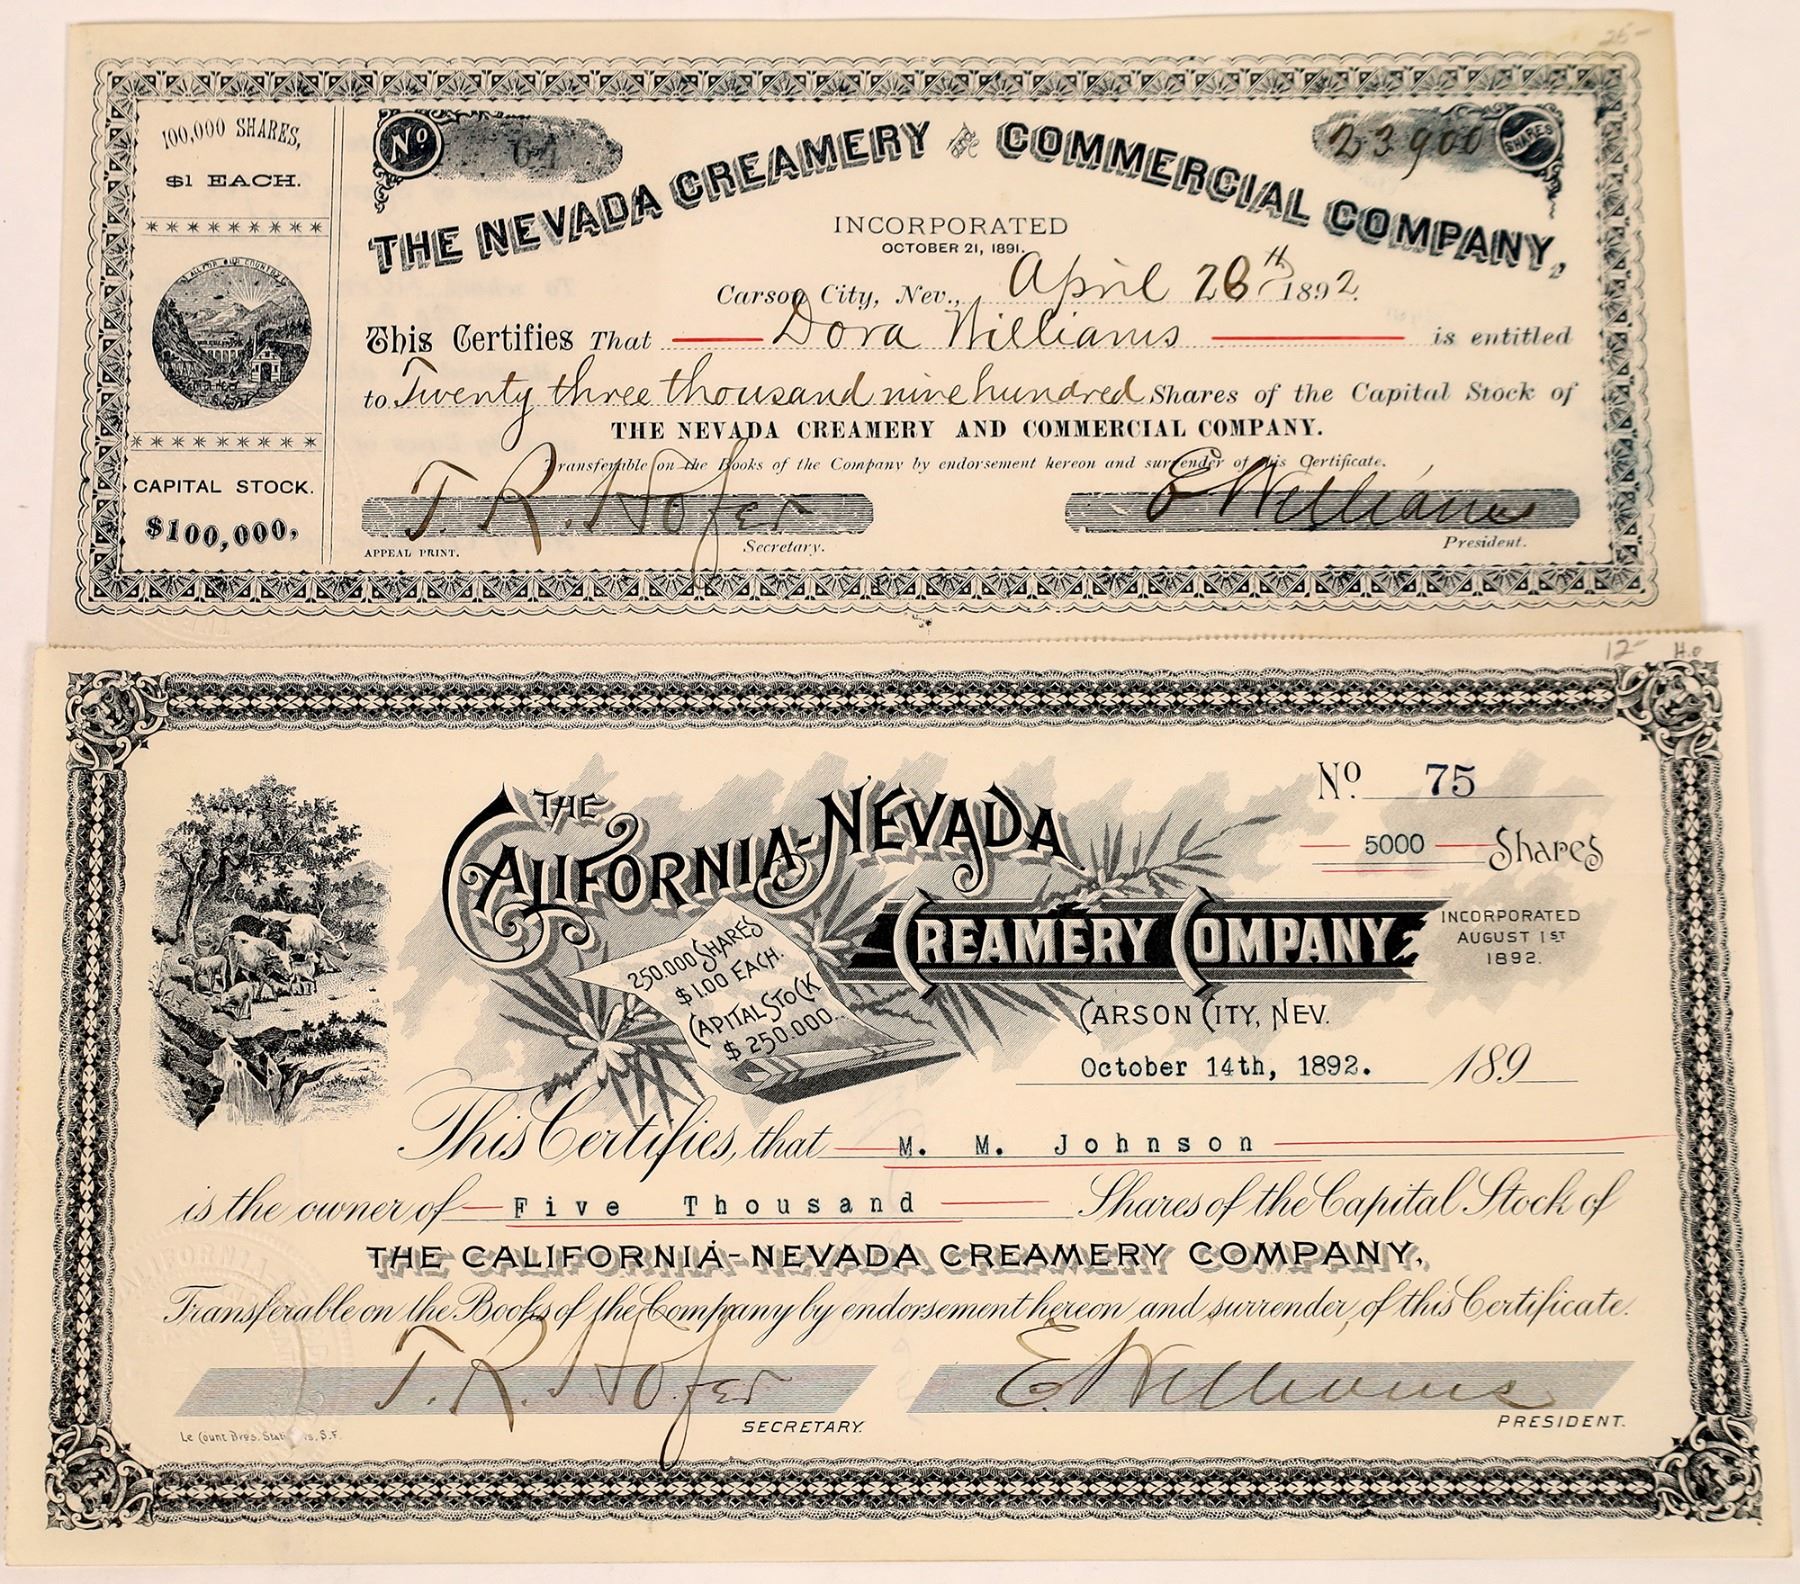 25-
100,000 SHARES,
$1 EACH.
ALL FOR OUR COUNTRY
CAPITAL STOCK.
$100,000,
No 64
23900 SHARES
THE NEVADA CREAMERY AND COMMERCIAL COMPANY,
INCORPORATED
OCTOBER 21, 1891.
Carson City, Nev., April 26th 1892.
This Certifies That Dora Williams is entitled
to Twenty three thousand nine hundred Shares of the Capital Stock of
THE NEVADA CREAMERY AND COMMERCIAL COMPANY.
Transferable on the Books of the Company by endorsement hereon and surrender of this Certificate.
T. R. Hofer
E Williams
APPEAL PRINT.
Secretary.
President.
12- H.o
No. 75
5000 Shares
THE
CALIFORNIA-NEVADA
CREAMERY COMPANY
INCORPORATED
AUGUST 1ST
1892.
250.000 SHARES
$1.00 EACH.
CAPITAL STOCK
$250.000.
CARSON CITY, NEV.
October 14th, 1892. 189
This Certifies, that M. M. Johnson
is the owner of Five Thousand Shares of the Capital Stock of
THE CALIFORNIA-NEVADA CREAMERY COMPANY,
Transferable on the Books of the Company by endorsement hereon and surrender of this Certificate.
T. R. Hofer
E. Williams
SECRETARY.
PRESIDENT.
Le Count Bros. Stationers, S.F.